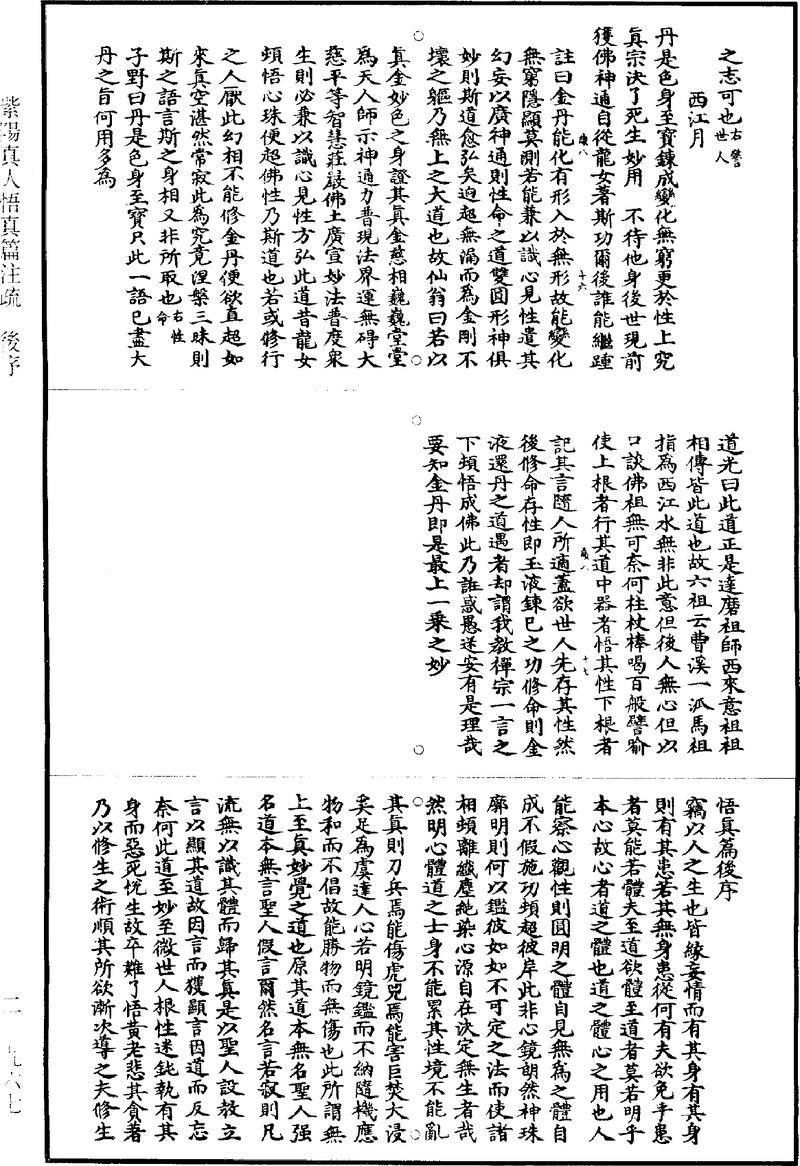 之志可也右警世人
西江月
丹是色身至寶鍊成變化無窮更於性上究
真宗決了死生妙用　不待他身後世現前
獲佛神通自從龍女著斯功爾後誰能繼踵
註曰金丹能化有形入於無形故能變化
無窮隱顯莫測若能兼以識心見性遣其
幻妄以廣神通則性命之道雙圓形神俱
妙則斯道愈弘矣迥超無漏而為金剛不
壞之軀乃無上之大道也故仙翁曰若以
真金妙色之身證其真金慈相巍巍堂堂
為天人師示神通力普現法界運無碍大
慈平等智慧莊嚴佛土廣宣妙法普度衆
生則必兼以識心見性方弘此道昔龍女
頓悟心珠便超佛性乃斯道也若或修行
之人厭此幻相不能修金丹便欲直超如
來真空湛然常寂此為究竟涅槃三昧則
斯之語言斯之身相又非所取也右性命
子野曰丹是色身至寶只此一語已盡大
丹之旨何用多為
道光曰此道正是達磨祖師西來意祖祖
相傳皆此道也故六祖云曹溪一派馬祖
指為西江水無非此意但後人無心但以
口談佛祖無可奈何柱杖棒喝百般譬喻
使上根者行其道中器者悟其性下根者
記其言隨人所適蓋欲世人先存其性然
後修命存性即玉液鍊已之功修命則金
液還丹之道遇者却謂我教禪宗一言之
下頓悟成佛此乃誑惑愚迷安有是理哉
要知金丹即是最上一乘之妙
悟真篇後序
竊以人之生也皆緣妄情而有其身有其身
則有其患若其無身患從何有夫欲免乎患
者莫能若體夫至道欲體至道者莫若明乎
本心故心者道之體也道之體心之用也人
能察心觀性則圓明之體自見無為之體自
成不假施功頓超彼岸此非心鏡朗然神珠
廓明則何以鑑彼如如不可定之法而使諸
相頓離纖塵絁染心源自在決定無生者哉
然明心體道之士身不能累其性境不能亂
其真則刀兵焉能傷虎兕焉能害巨焚大浸
奚足為虞達人心若明鏡鑑而不納隨機應
物和而不倡故能勝物而無傷也此所謂無
上至真妙覺之道也原其道本無名聖人強
名道本無言聖人假言爾然名言若寂則凡
流無以識其體而歸其真是以聖人設教立
言以顯其道故因言而獲顯言因道而反忘
奈何此道至妙至微世人根性迷鈍執有其
身而惡死悅生故卒難了悟黃老悲其貪著
乃以修生之術順其所欲漸次導之夫修生
紫陽真人悟真篇注疏　後序
二―九六七